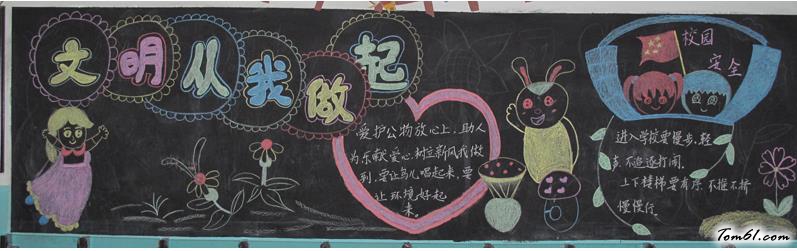 文明从我做起
爱护公物放心上，助人
为乐献爱心，树立新风我做
到，要让鸟儿唱起来，要
让环境好起
来。
校园
安全
进入学校要慢步，轻
声，不追逐打闹，
上下楼梯要有序，不推不挤
慢慢行。
Tom61.com